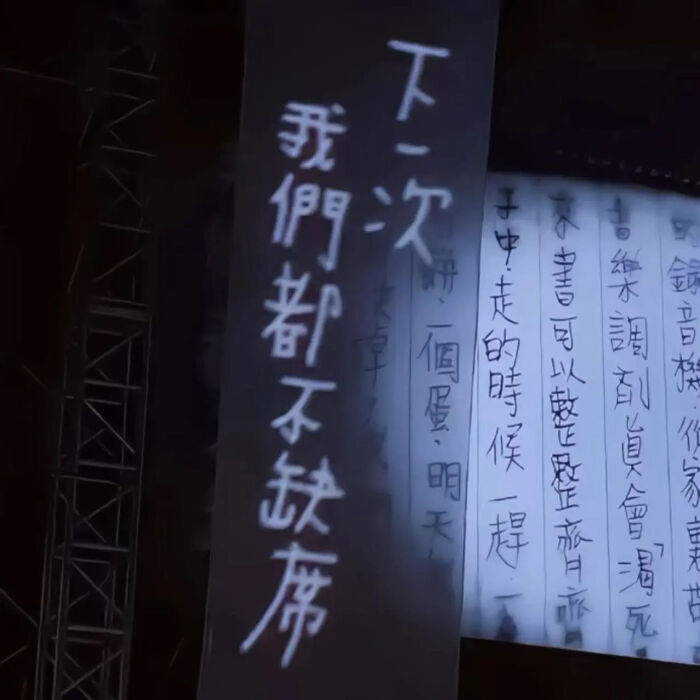 錄音機從家裏
音樂調劑真會渴死
來書可以整整齊齊
子中.走的時候一趕.一
餅.一個蛋.明天
下一次
我們都不缺席